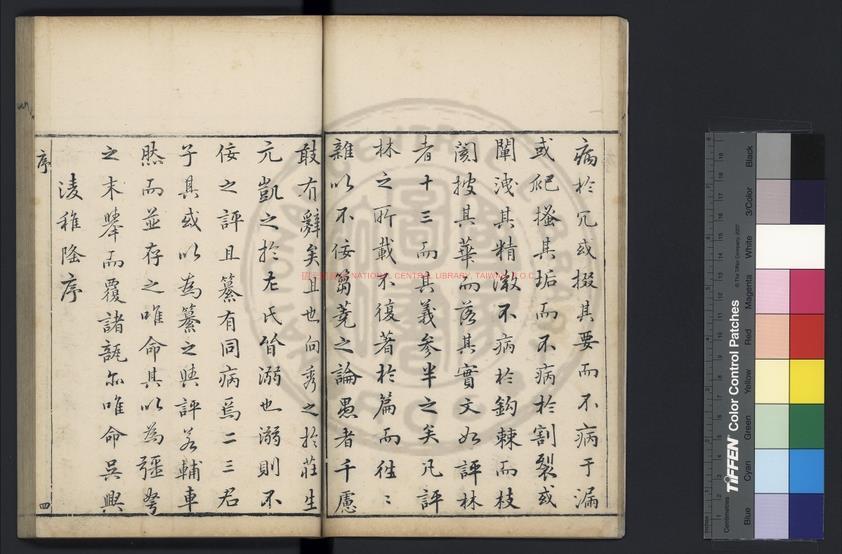 病於冗或掇其要而不病于漏
或爬搔其垢而不病於割裂或
闡洩其精微不病於鈎棘而枝
闳披其華而落其實文如評林
者十三而其義參半之矣凡評
林之所載不復著於篇而往〻
雜以不佞蒭蕘之論愚者千慮
敢有辭矣且也向秀之於莊生
元凱之於左氏皆溺也溺則不
佞之評且纂有同病焉二三君
子其或以為纂之與評若輔車
然而並存之唯命其以為彊弩
之末舉而覆諸瓿亦唯命吳興
淩稚隆序
序
四
NATIONAL CENTRAL LIBRARY, TAIWAN R.O.C.
Black
3/Color
White
Magenta
Red
Yellow
Green
Cyan
Blue
TIFFEN Color Control Patches
© The Tiffen Company, 2007
Centimetres
Inches